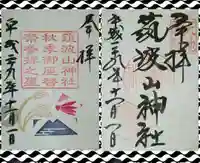 奉拝
筑波山神社
秋季御座替
祭参拝之璽
平成二九年十一月一日
奉拝
筑波山神社
平成二九年十一月